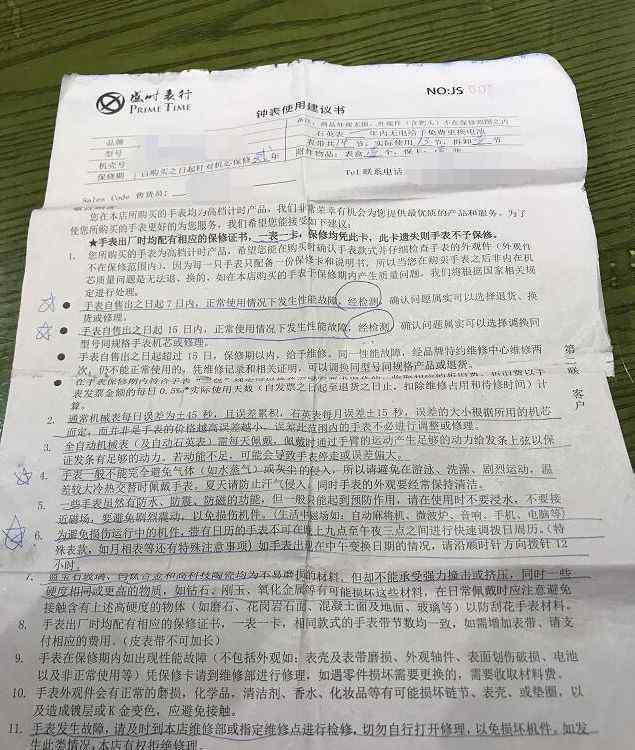 盛时表行
PRIME TIME
NO:JS
钟表使用建议书
品牌
备注:商品外观无损,外观件(含把头)不在保修范围之内
型号
石英表一年内无电给予免费更换电池
机壳号
表带共14节,实际使用13节,拆卸
保修期(自购买之日起针对机芯保修贰年
附件物品:表盒 个,保卡
Sales Code 售货员:
Tel 联系电话
您在本店所购买的手表均为高档计时产品,我们非常荣幸有机会为您提供最优质的产品和服务。为了
使您所购买的手表更好的为您服务,我们希望您能接受如下建议。
★手表出厂时均配有相应的保修证书,一表一卡,保修均凭此卡,此卡遗失则手表不予保修。
1. 您所购买的手表为高档计时产品,希望您能在购买时确认手表款式并仔细检查手表的外观件(外观件
不在保修范围内)。因为每一只手表只配备一份保修卡和说明书,所以当您在购买手表之后非内在机
芯质量问题是无法退、换的。如在本店购买的手表于保修期内产生质量问题,我们将根据国家相关规
定进行处理。
● 手表自售出之日起7日内,正常使用情况下发生性能故障,经检测,确认问题属实可以选择退货、换
货或修理。
● 手表自售出之日起15日内,正常使用情况下发生性能故障,经检测,确认问题属实可以选择调换同
型号同规格手表机芯或修理。
● 手表自售出之日起超过15日,保修期以内,给予维修。同一性能故障,经品牌特约维修中心维修两
次,仍不能正常使用的,凭维修记录和相关证明,可以调换同型号同规格产品或退货。
● 在手表保修期内符合手表
表发票金额的每日0.5%*实际使用天数(自发票之日起至退货之日止,扣除维修占用和待修时间)计
算。
第二联 客户
2. 通常机械表每日误差为±45秒,且误差累积,石英表每月误差±15秒,误差的大小根据所用的机芯
而定,而并非是手表的价格越高误差越小。误差此范围内的手表不必进行调整或修理。
3. 全自动机械表(及自动石英表)需每天佩戴,佩戴时通过手臂的运动产生足够的动力给发条上弦以保
证发条有足够的动力。若动能不足,可能会导致手表停走或误差偏大。
4. 手表一般不能完全避免气体(如水蒸气)或灰尘的侵入,所以请避免在游泳、洗澡、剧烈运动,温
差较大冷热交替时佩戴手表。夏天请防止汗气侵入。同时手表的外观要经常保持清洁。
5. 一些手表虽然有防水、防震、防磁的功能,但一般只能起到预防作用,请在使用时不要浸水,不要接
近磁场,要避免剧烈震动,以免损伤机件。(生活中磁场如:自动麻将机、微波炉、音响、手机、电脑等)
6. 为避免损伤运行中的机件,带有日历的手表不可在晚上九点至午夜三点之间进行快速调拨日周历。(特
殊表款,如月相表等还有特殊注意事项)如手表出现在中午变换日期的情况,请沿顺时针方向拨针12
小时。
7. 蓝宝石玻璃,钨钛合金和高科技陶瓷均为不易磨损的材料,但却不能承受强力撞击或挤压,同时一些
硬度相同或更高的物质,如钻石、刚玉、氧化金属等有可能损坏这些材料,在日常佩戴时应注意避免
接触含有上述高硬度的物体(如磨石、花岗岩石面、混凝土面及地面、玻璃等)以防刮花手表材料。
8. 手表出厂时均配有相应的保修证书,一表一卡,相同款式的手表带节数均一致,如需增加表带、请支
付相应的费用。(皮表带不可加长)
9. 手表在保修期内如出现性能故障(不包括外观如:表壳及表带磨损、外观轴件、表面划伤破损、电池
以及非正常使用等)凭保修卡请到维修部进行修理,如遇零件损坏需要更换的,需要收取材料费。
10. 手表外观件会有正常的磨损,化学品,清洁剂、香水、化妆品等有可能损坏链节、表壳、或垫圈,以
及造成镀层或K金变色,应避免接触。
11. 手表发生故障,请及时到本店维修部或指定维修点进行检修,切勿自行打开修理,以免损坏机件。如发
生此类情况,本店有权拒绝修理。